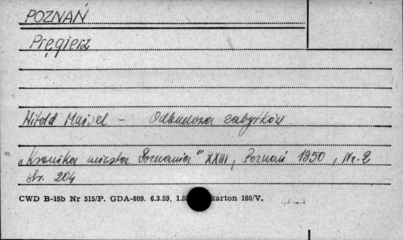 POZNAŃ
Pręgierz
Witold Maisel - Odbudowa zabytków
„Kronika miasta Poznania" XXIII, Poznań 1950, Nr. 2
str. 204
CWD B-15b Nr 515/P. GDA-809. 6.3.59, karton 180/V.